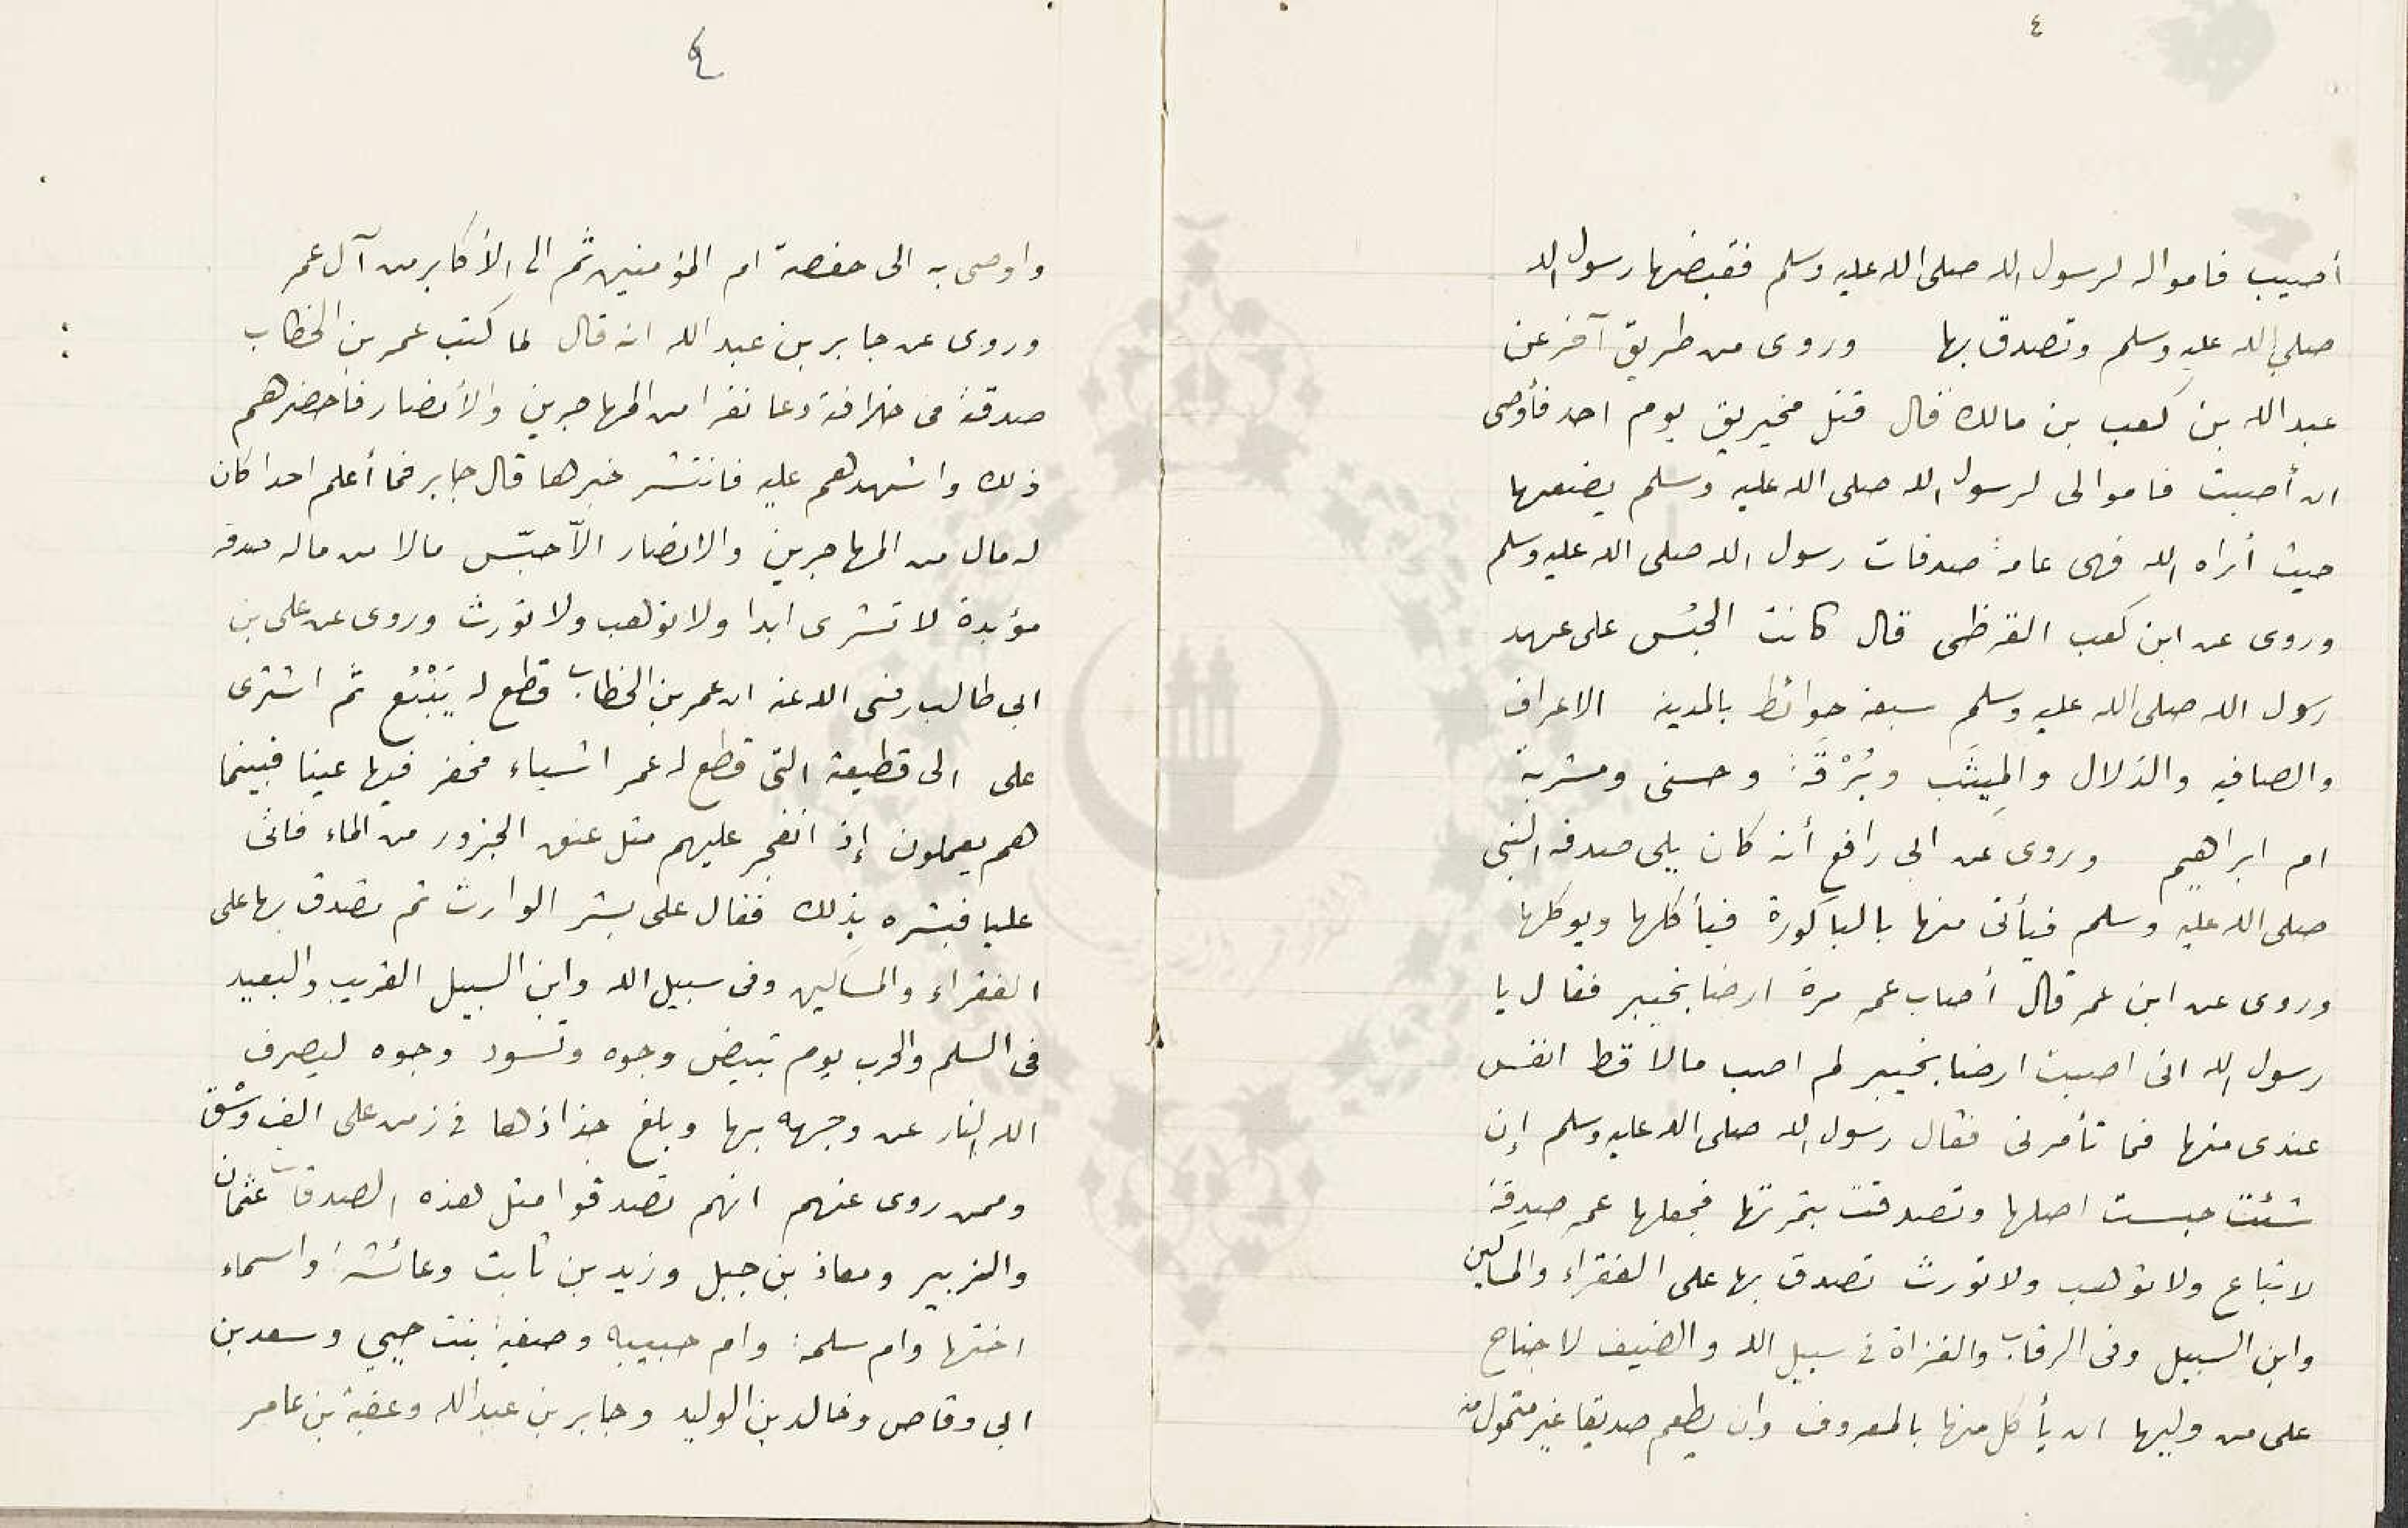 ٤
أصيب فاموا له لرسول الله صلى الله عليه وسلم فقبضها رسول الله
صلى الله عليه وسلم وتصدق بها وروى من طريق آخر عن
عبد الله بن كعب بن مالك قال قتل مخيريق يوم احد فأوصى
ان أصبت فاموالى لرسول الله صلى الله عليه وسلم يضعها
حيث أراه الله فهى عامة صدقات رسول الله صلى الله عليه وسلم
وروى عن ابن كعب القرظى قال كانت الحبُس على عهد
رسول الله صلى الله عليه وسلم سبعة حوائط بالمدينة الاعراف
والصافيه والدلال والمِيثَب وبُرْقَة وحسنى ومشربة
ام ابراهيم وروى عن ابى رافع أنه كان يلى صدقة النبى
صلى الله عليه وسلم فيأتى منها بالباكورة فيأكلها ويوكلها
وروى عن ابن عمر قال أصاب عمر مرة ارضا بخيبر فقال يا
رسول الله انى اصبت ارضا بخيبر لم اصب مالا قط انفس
عندى منها فما تأمرنى فقال رسول الله صلى الله عليه وسلم إن
شئت حبست اصلها وتصدقت بثمرتها فجعلها عمر صدقة
لا تباع ولا توهب ولا تورث تصدق بها على الفقراء والمساكين
وابن السبيل وفى الرقاب والغزاة فى سبيل الله والضيف لا جناح
على من وليها ان يأكل منها بالمعروف وان يطعم صديقا غير متمول منه
٤
واوصى به الى حفصة ام المؤمنين ثم الى الأكابر من آل عمر
وروى عن جابر بن عبد الله انه قال لما كتب عمر بن الخطاب
صدقة فى خلافة دعا نفرا من المهاجرين والأنصار فأحضرهم
ذلك واشهدهم عليه فانتشر خبرها قال جابر فما أعلم احدا كان
له مال من المهاجرين والانصار الاّ حبّس مالا من ماله صدقة
مؤبدة لا تشرى ابدا ولا توهب ولا تورث وروى عن على بن
ابى طالب رضى الله عنه ان عمر بن الخطاب قطع له يَنْبُع ثم اشترى
على الى قطيعة التى قطع له عمر اشياء فحفر فيها عينا فبينما
هم يعملون إذ انفجر عليهم مثل عنق الجزور من الماء فاتى
عليا فبشره بذلك فقال على بشر الوارث ثم تصدق بها على
الفقراء والمساكين وفى سبيل الله وابن السبيل القريب والبعيد
فى السلم والحرب يوم تبيض وجوه وتسود وجوه ليصرف
الله النار عن وجهه بها وبلغ جذاذها فى زمن على الف وسْق
وممن روى عنهم انهم تصدقوا مثل هذه الصدقات عثمان
والزبير ومعاذ بن جبل وزيد بن ثابت وعائشة واسماء
اختها وام سلمة وام حبيبه وصفية بنت حيي وسعد بن
ابى وقاص وخالد بن الوليد وجابر بن عبد الله وعقبة بن عامر